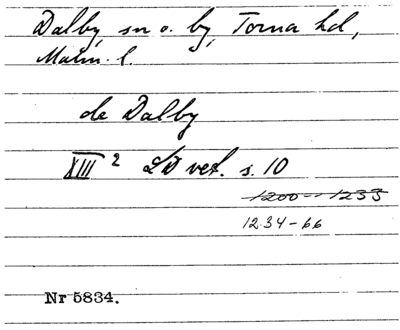 Dalby, sn o. by, Torna hd,
Malm. l.
de Dalby
XIII 2 LD vet. s. 10
1200 - 1233
1234-66
Nr 5834.